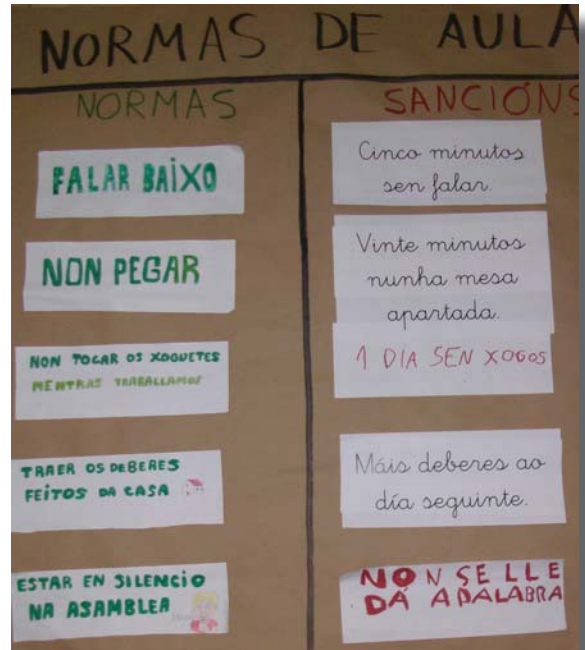 NORMAS DE AULA
NORMAS
SANCIÓNS
FALAR BAIXO
Cinco minutos
sen falar.
NON PEGAR
Vinte minutos
nunha mesa
apartada.
NON TOCAR OS XOGUETES
MENTRAS TRABALLAMOS
1 DIA SEN XOGOS
TRAER OS DEBERES
FEITOS DA CASA
Máis deberes ao
día seguinte.
ESTAR EN SILENCIO
NA ASAMBLEA
NON SE LLE
DÁ A PALABRA